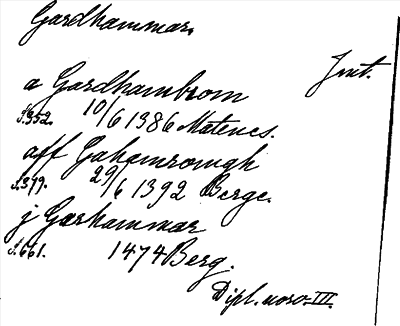 Gardhammar.
Jnt.
a Gardhambrom
s.352. 10/6 1386 Matnes.
aff Gahamromgh
s.379. 29/6 1392 Berge.
j Garhammar
s.661. 1474 Berg.
Dipl. norv. III.